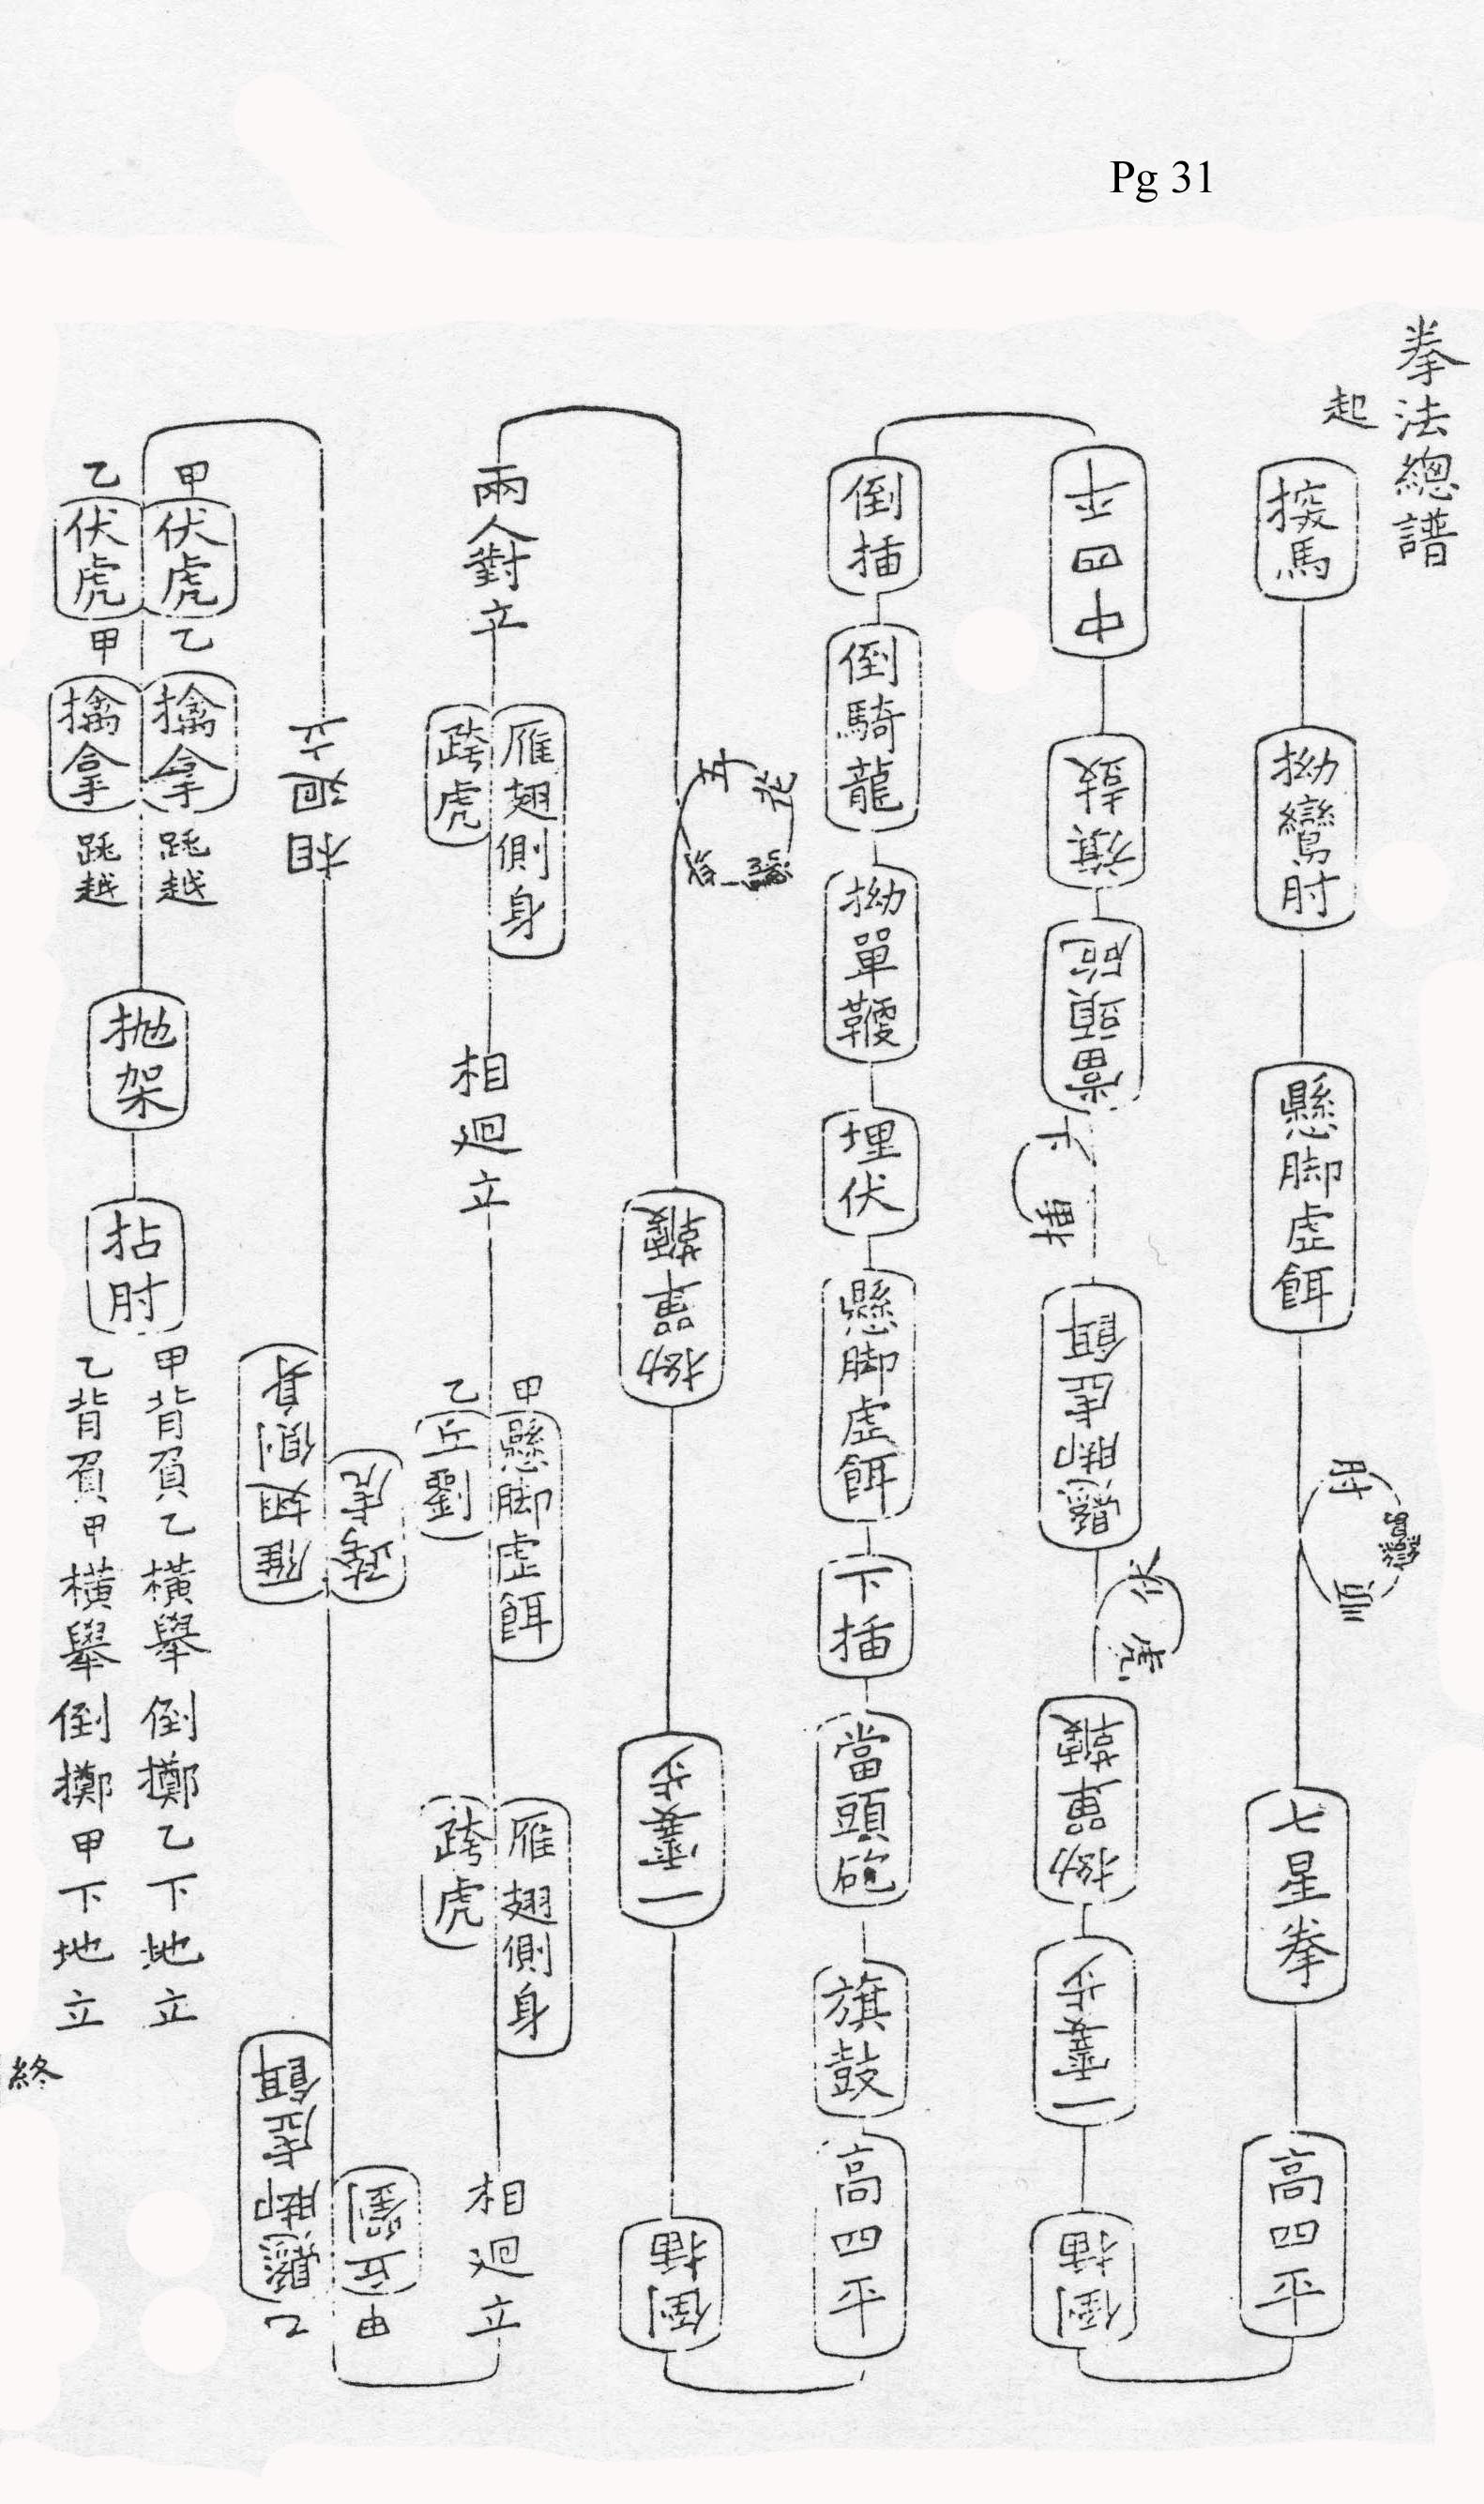 Pg 31
拳法總譜
起
探馬
拗鸞肘
懸脚虛餌
順鸞肘
七星拳
高四平
倒插
一霎步
拗單鞭
伏虎
懸脚虛餌
下插
當頭砲
旗鼓
中四平
倒插
倒騎龍
拗單鞭
埋伏
懸脚虛餌
下插
當頭砲
旗鼓
高四平
倒插
一霎步
拗單鞭
五花纏身
兩人對立
雁翅側身
跨虎
相廻立
甲
懸脚虛餌
乙
丘劉
雁翅側身
跨虎
相廻立
甲
丘劉
乙
懸脚虛餌
跨虎
雁翅側身
相廻立
甲
伏虎
乙
伏虎
乙
擒拿
甲
擒拿
跳越
跳越
抛架
拈肘
甲背負乙橫擧倒擲乙下地立
乙背負甲橫擧倒擲甲下地立
終